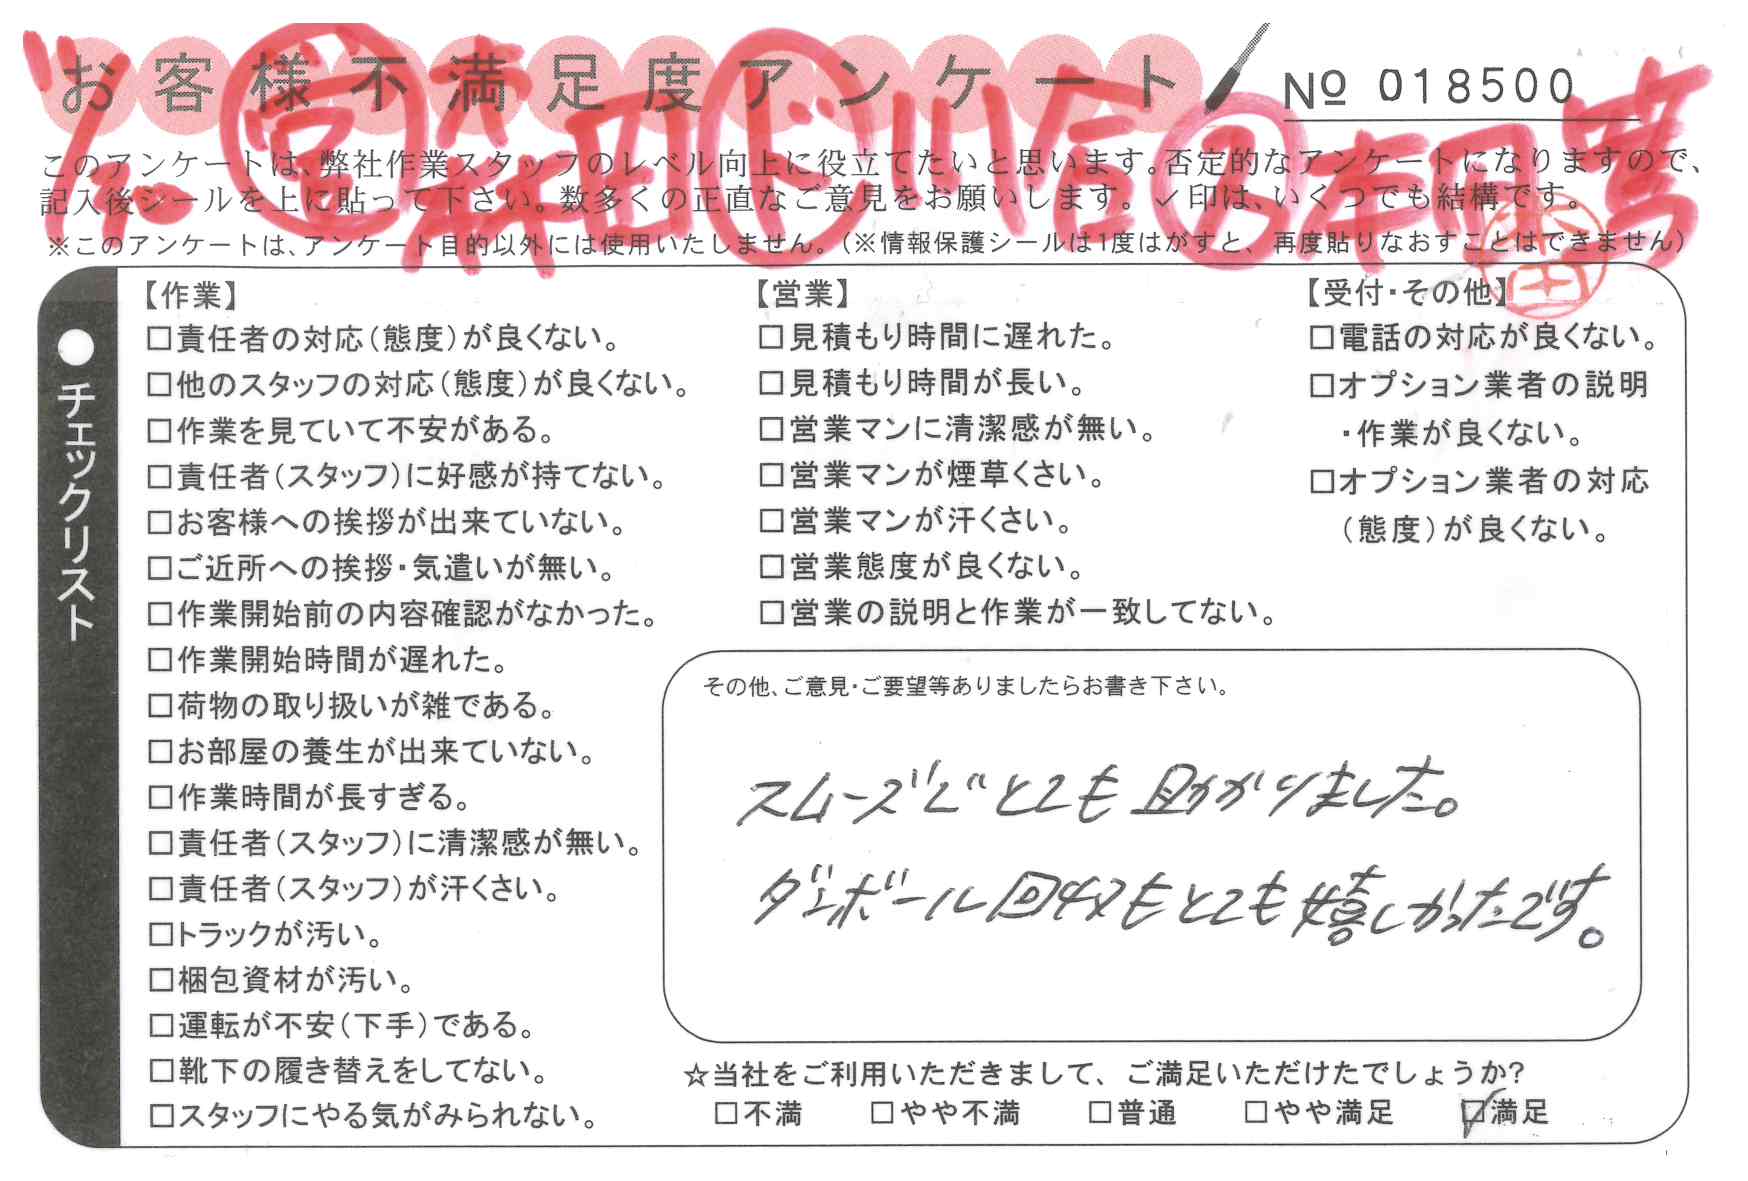 お客様不満足度アンケート
№ 018500
このアンケートは、弊社作業スタッフのレベル向上に役立てたいと思います。否定的なアンケートになりますので、
記入後シールを上に貼って下さい。数多くの正直なご意見をお願いします。✓印は、いくつでも結構です。
※このアンケートは、アンケート目的以外には使用いたしません。(※情報保護シールは1度はがすと、再度貼りなおすことはできません)
●チェックリスト
【作業】
□責任者の対応(態度)が良くない。
□他のスタッフの対応(態度)が良くない。
□作業を見ていて不安がある。
□責任者(スタッフ)に好感が持てない。
□お客様への挨拶が出来ていない。
□ご近所への挨拶・気遣いが無い。
□作業開始前の内容確認がなかった。
□作業開始時間が遅れた。
□荷物の取り扱いが雑である。
□お部屋の養生が出来ていない。
□作業時間が長すぎる。
□責任者(スタッフ)に清潔感が無い。
□責任者(スタッフ)が汗くさい。
□トラックが汚い。
□梱包資材が汚い。
□運転が不安(下手)である。
□靴下の履き替えをしてない。
□スタッフにやる気がみられない。
【営業】
□見積もり時間に遅れた。
□見積もり時間が長い。
□営業マンに清潔感が無い。
□営業マンが煙草くさい。
□営業マンが汗くさい。
□営業態度が良くない。
□営業の説明と作業が一致してない。
【受付・その他】
□電話の対応が良くない。
□オプション業者の説明
・作業が良くない。
□オプション業者の対応
(態度)が良くない。
その他、ご意見・ご要望等ありましたらお書き下さい。
スムーズでとても助かりました。
ダンボール回収もとても嬉しかったです。
☆当社をご利用いただきまして、ご満足いただけたでしょうか?
□不満 □やや不満 □普通 □やや満足 ☑満足